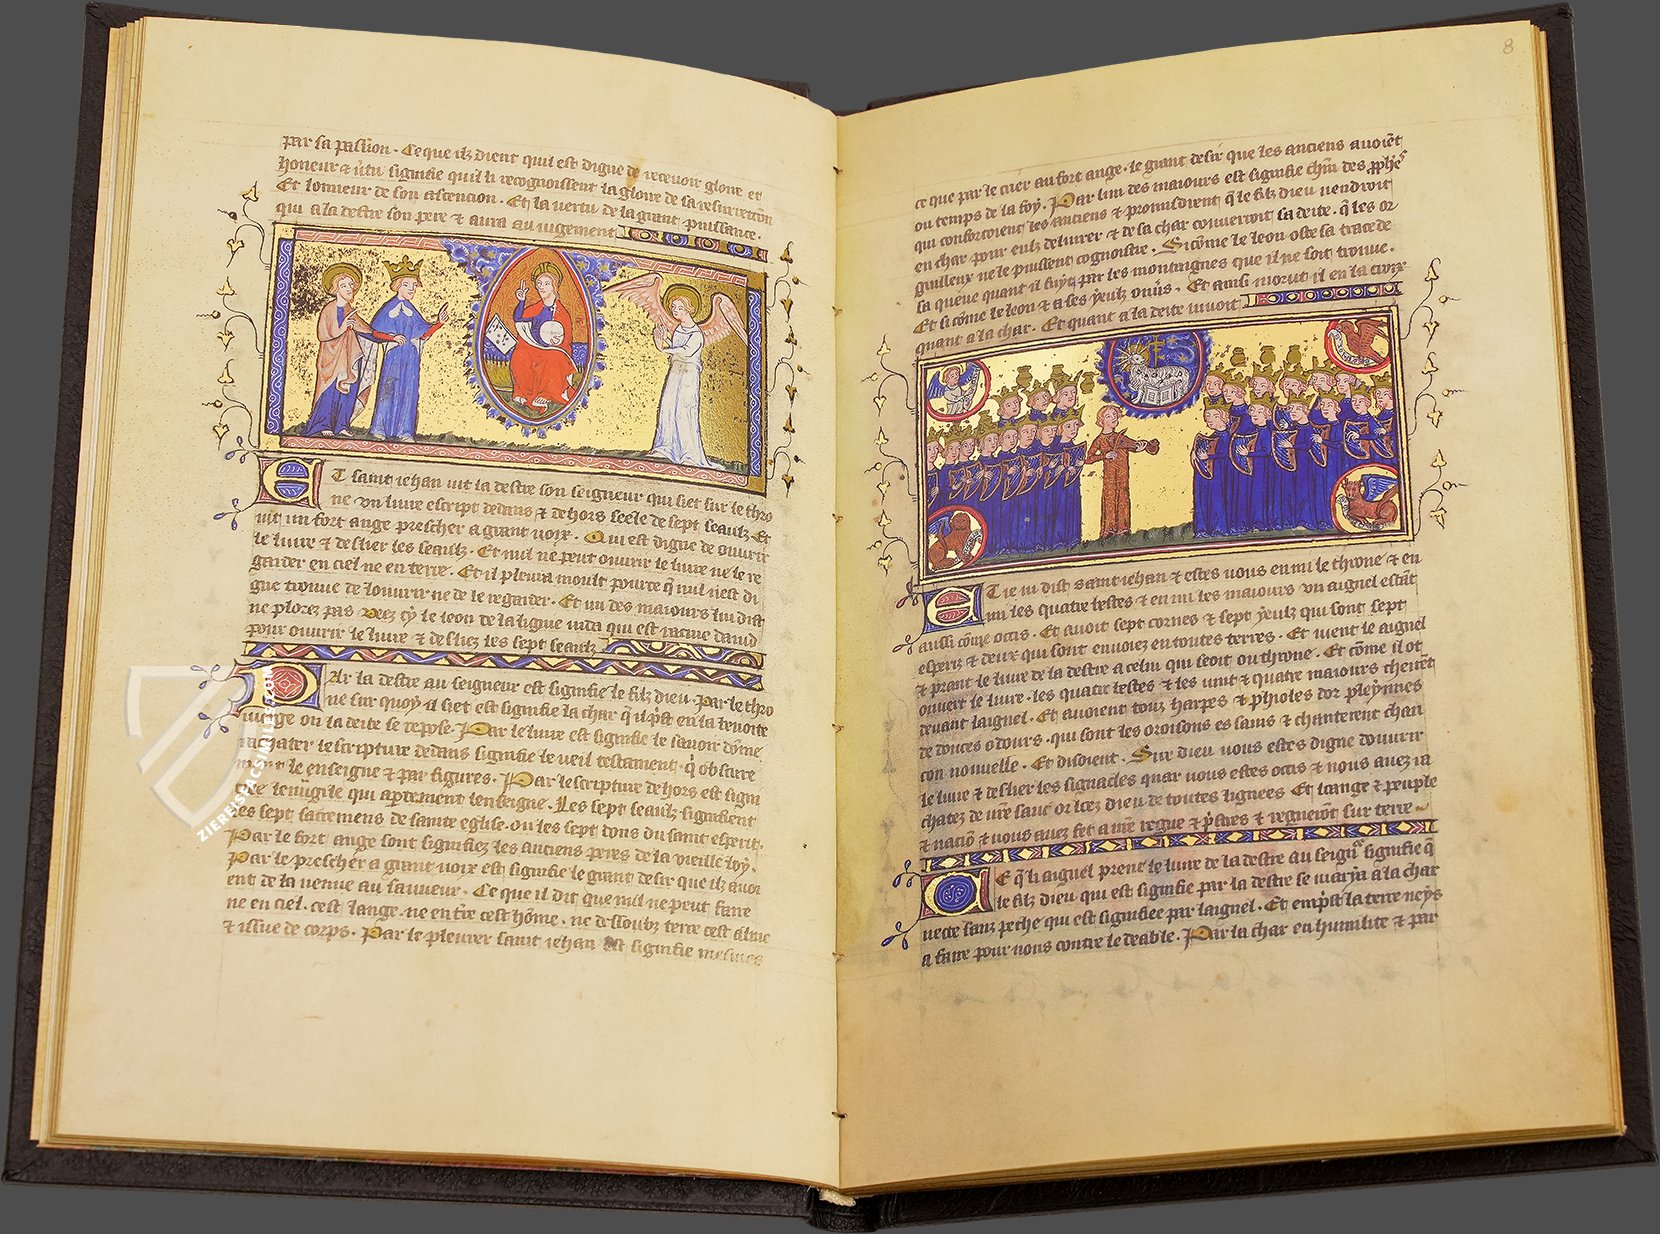 par sa passion. Ce que ilz dient quil est digne de recevoir gloire et
honeur & vtu signifie quil li recognoissent la gloire de sa resurrection
Et lonneur de son ascencion. Et la vertu de la grant puissance.
qui a la destre son pere & aura au iugement
ET saint iehan vit la destre son seigneur qui siet sur le thro
ne vn liure escript dedans & dehors seele de sept seaulz Et
vit un fort ange prescher a grant voix. Qui est digne de ouurir
le liure & deslier les seaulz. Et nul ne peut ouurir le liure ne le re
garder en ciel ne en terre. Et il pleura moult pource q̄ nul nest di
gne trouue de louurir ne de le regarder. Et un des maiours lui dist
ne plorez pas veez cy le leon de la ligne iuda qui est racine dauid
pour ouurir le liure & desliez les sept seaulz
PAr la destre au seigneur est signifie le filz dieu. Par le thro
ne sur quoy il siet est signifie la char q̄ il p̄st en la benoite
vierge ou la deite se repose. Par le liure est signifie le sauoir dōme
rachater le scripture dedans signifie le vieil testament q̄ obscure
ment le enseigne & par figures. Par le scripture dehors est signi
fiee leuugile qui apertement lenseigne. Les sept seaulz signifient
les sept sacremens de sainte eglise. ou les sept dons du saint esperit.
Par le fort ange sont signifiez les anciens peres de la vieille loy.
Par le prescher a grant voix est signifie le grant desir que ilz auoi
ent de la venue au sauueur. Ce que il dit que nul ne peut faire
ne en ciel. cest lange. ne en tr̄e cest hōme. ne dessoubz terre cest alme
& issue de corps. Par le pleurer saint iehan est signifie mesmes
ZIEREISFACSIMILES.COM
8
ce que par le crier au fort ange. le grant desir que les anciens auoiēt
ou temps de la foy. Par lun des maiours est signifie chūn des p̄phe
qui confortoient les anciens & promisdrent q̄ le filz dieu vendroit
en char pour eulz deliurer & de sa char couuerroit sa deite. q̄ les or
guilleux ne le puissent cognoistre. Si cōme le leon oste sa trace de
sa queue quant il fuyt par les montaignes que il ne soit trouue.
Et si cōme le leon & a ses yeulz ouūs. Et ainsi morut il en la croix
quant a la char. Et quant a la deite viuoit
ET ie vi dist saint iehan & estes vous en mi le throne & en
mi les quatre bestes & en mi les maiours vn aignel estāt
aussi cōme occis. Et auoit sept cornes & sept yeulz qui sont sept
esperiz & deux qui sont enuoiez en toutes terres. Et vient le aignel
& prant le liure de la destre a celui qui seoit ou throne. Et cōme il ot
ouuert le liure. les quatre bestes & les vint & quatre maiours cheirēt
deuant laignel. Et auoient touz harpes & phioles dor pleynnes
de douces odours. qui sont les oroisons es sains & chanterent chan
con nouuelle. Et disoient. Sire dieu vous estes digne douurir
le liure & deslier les signacles quar vous estes occis & nous auez ra
chatez de vrē sanc orlez dieu de toutes lignees Et lange & peuple
& naciō & nous auez fet a nrē regne & p̄stres & regnerōt sur terre
CE q̄ li aignel prent le liure de la destre au seign̄r signifie q̄
le filz dieu qui est signifie par la destre se maria a la char
nette sanz peche qui est signifiee par laignel. Et emp̄st la terre neys
a faire pour nous contre le deable. Par la char en humilite & par